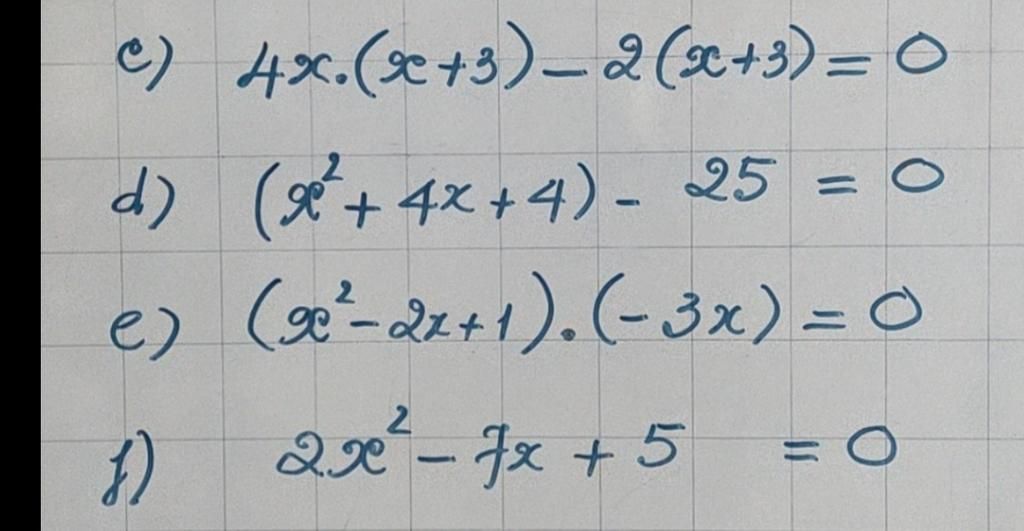 c) 4x.(x+3) - 2(x+3) = 0
d) (x² + 4x + 4) - 25 = 0
e) (x² - 2x + 1).(-3x) = 0
f) 2x² - 7x + 5 = 0